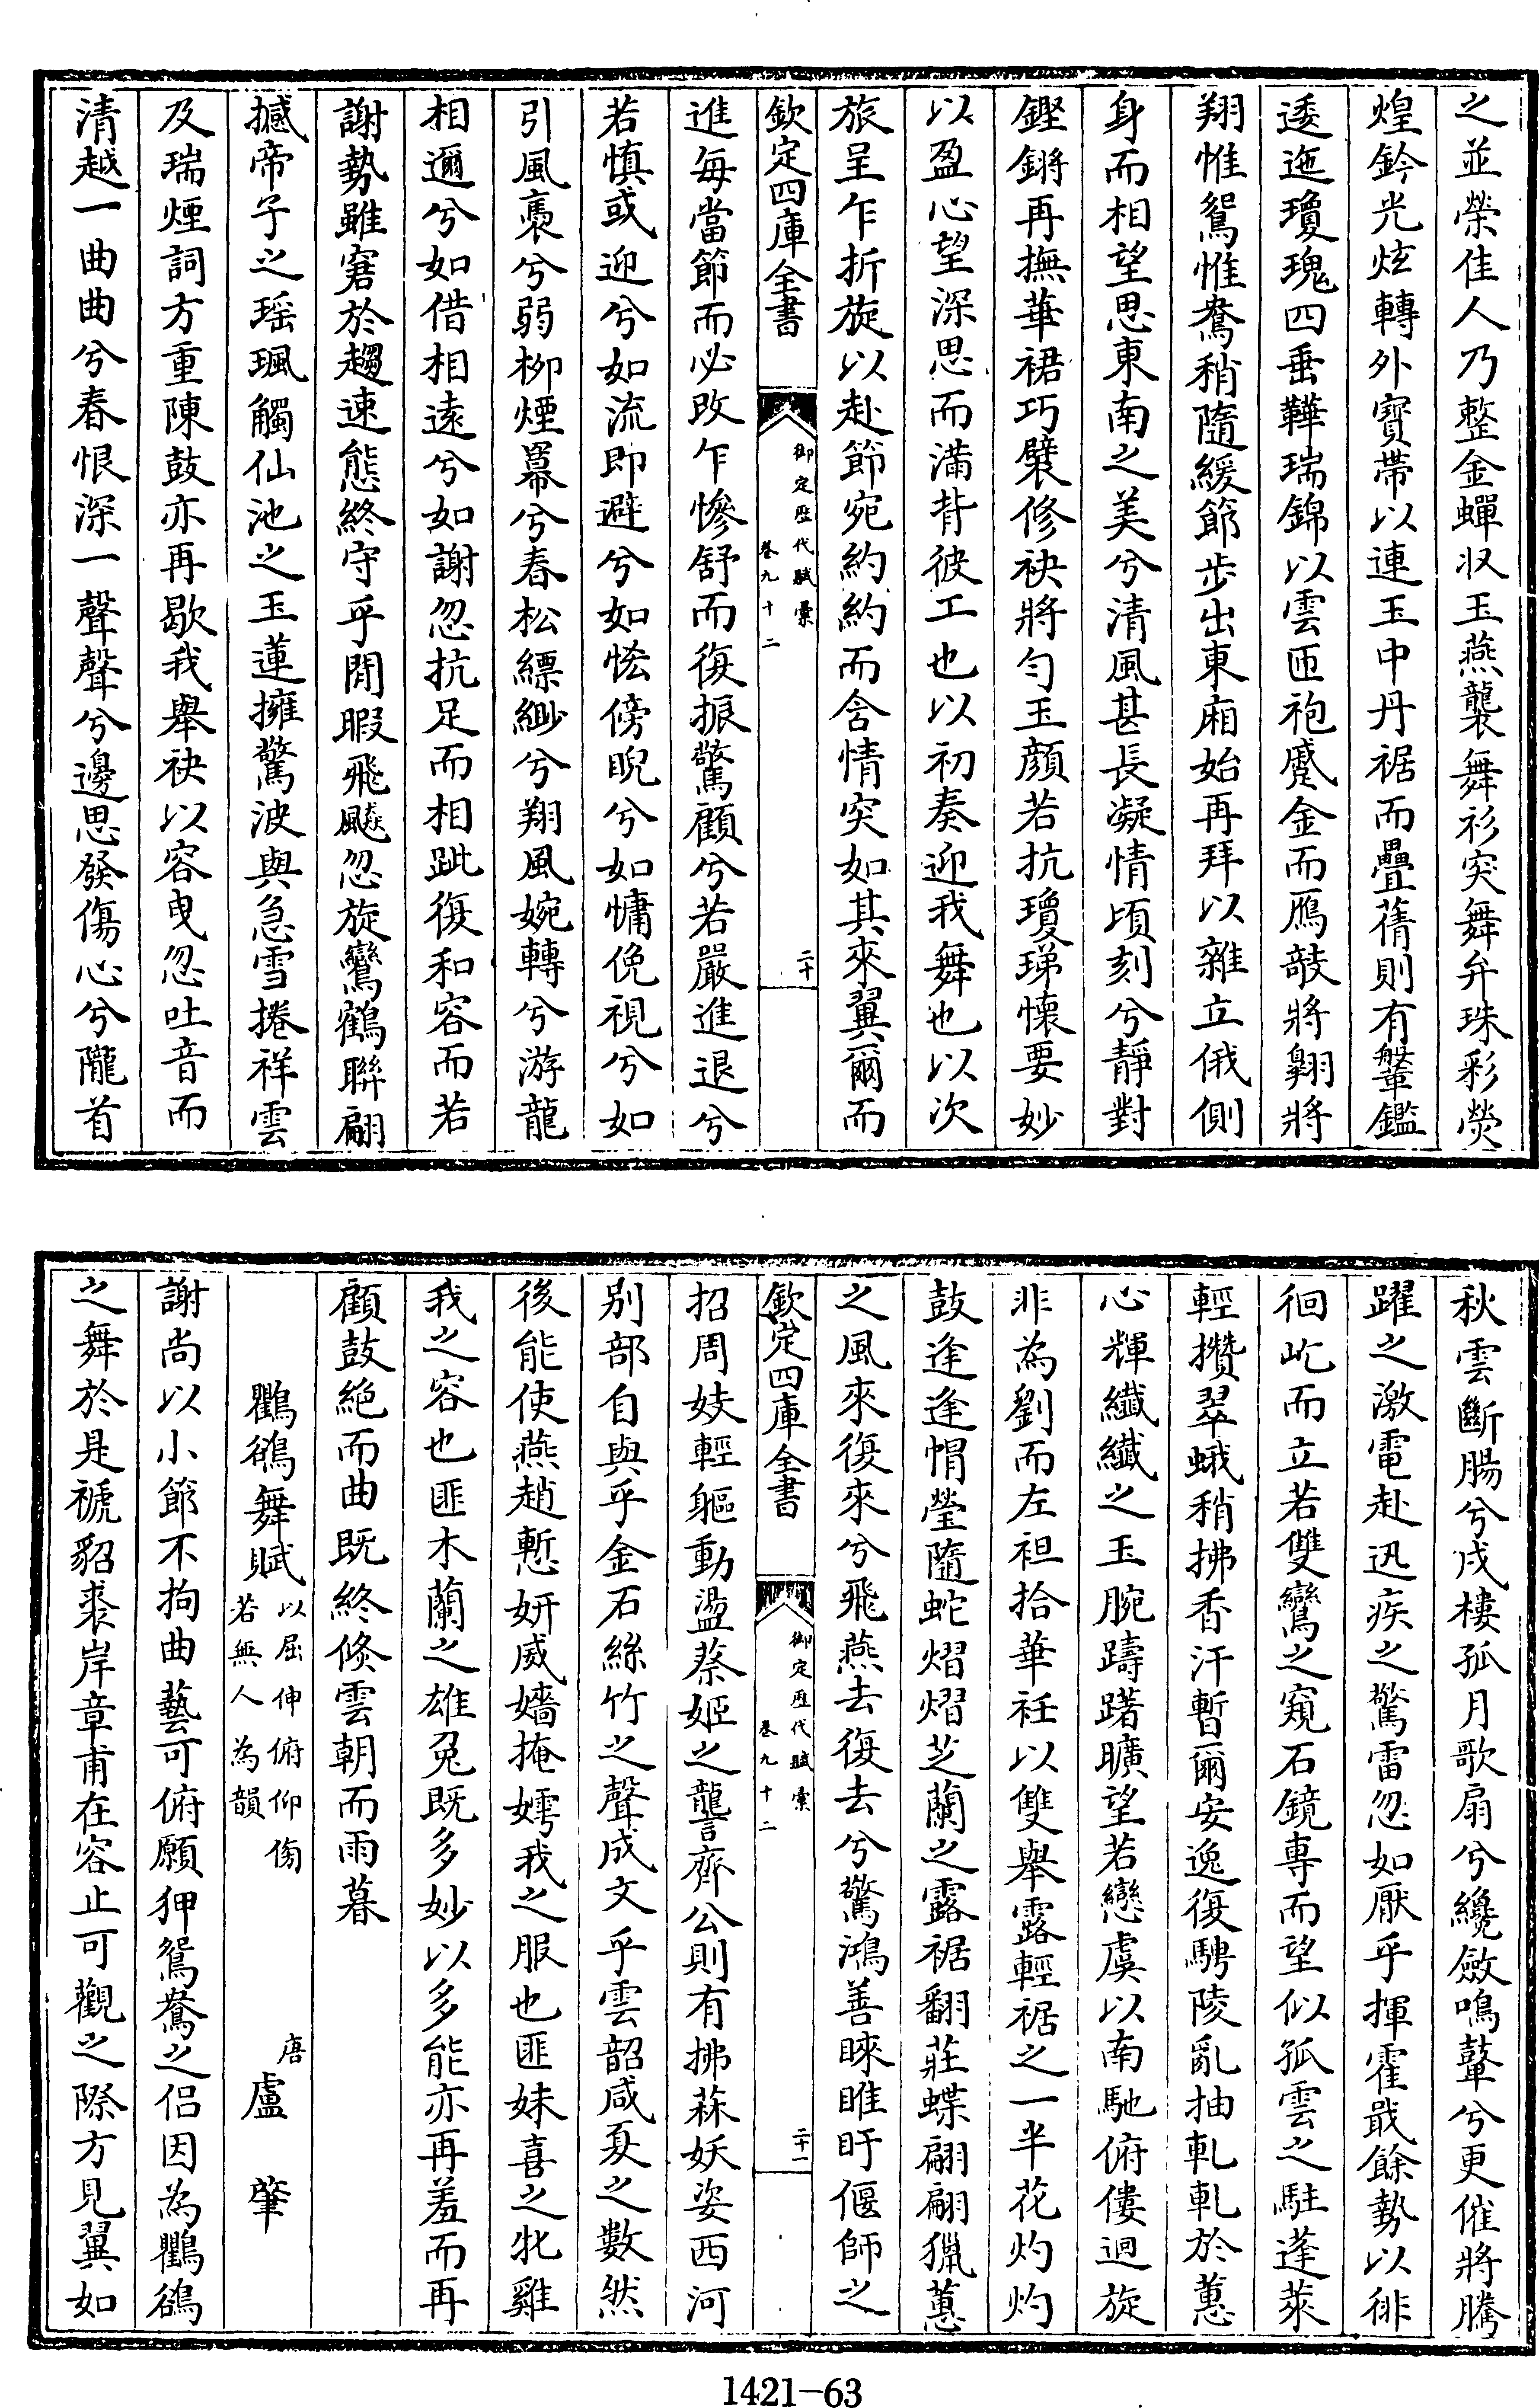 之並榮佳人乃整金蟬收玉燕襲舞衫突舞弁珠彩熒
煌鈐光炫轉外寶帶以連玉中丹裾而疊蒨則有鞶鑑
逶迤瓊瑰四垂鞾瑞錦以雲匝袍蹙金而鴈敧將翱將
翔惟鴛惟鴦稍隨緩節步出東廂始再拜以雜立俄側
身而相望思東南之美兮清風甚長凝情頃刻兮靜對
鏗鏘再撫華裙巧襞修袂將勻玉顏若抗瓊珶懷要妙
以盈心望深思而滿背彼工也以初奏迎我舞也以次
旅呈乍折旋以赴節宛約約而含情突如其來翼爾而
欽定四庫全書
御定歷代賦彙
卷九十二
二十
進每當節而必改乍慘舒而復振驚顧兮若嚴進退兮
若慎或迎兮如流即避兮如恡傍睨兮如慵俛視兮如
引風褭兮弱柳煙冪兮春松縹緲兮翔風婉轉兮游龍
相邇兮如借相遠兮如謝忽抗足而相跐復和容而若
謝勢雖窘於趨速態終守乎閒暇飛飈忽旋鸞鶴聯翩
撼帝子之瑶珮觸仙池之玉蓮擁驚波與急雪捲祥雲
及瑞煙詞方重陳鼓亦再歇我舉袂以容曳忽吐音而
清越一曲曲兮春恨深一聲聲兮邊思發傷心兮隴首
秋雲斷腸兮戍樓孤月歌扇兮纔斂鳴鼙兮更催將騰
躍之激電赴迅疾之驚雷忽如厭乎揮霍戢餘勢以徘
徊屹而立若雙鸞之窺石鏡專而望似孤雲之駐蓬萊
輕攢翠蛾稍拂香汗暫爾安逸復騁陵亂抽軋軋於蕙
心輝纖纖之玉腕躊躇曠望若戀虞以南馳俯僂迴旋
非為劉而左袒拾華衽以雙舉露輕裾之一半花灼灼
鼓逢逢帽瑩隨蛇熠熠芝蘭之露裾翻莊蝶翩翩獵蕙
之風來復來兮飛燕去復去兮驚鴻善睞睢盱偃師之
欽定四庫全書
御定歷代賦彙
卷九十二
二十一
招周妓輕軀動盪蔡姬之讋齊公則有拂菻妖姿西河
别部自與乎金石絲竹之聲成文乎雲韶咸夏之數然
後能使燕趙慙妍威嬙掩嫮我之服也匪妹喜之牝雞
我之容也匪木蘭之雄兔既多妙以多能亦再羞而再
顧鼓絶而曲既終倏雲朝而雨暮
鸜鵒舞賦 以屈伸俯仰傍若無人為韻 唐 盧肇
謝尚以小節不拘曲藝可俯願狎鴛鴦之侣因為鸜鵒
之舞於是褫貂裘岸章甫在容止可觀之際方見翼如
1421-63